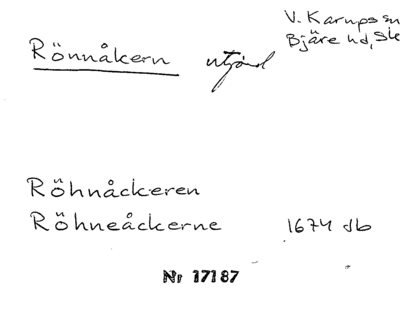 V. Karups sn
Bjäre hd, Sk
Rönnåkern utjord
Röhnåckeren
Röhneåckerne 1674 Jb
Nr 17187